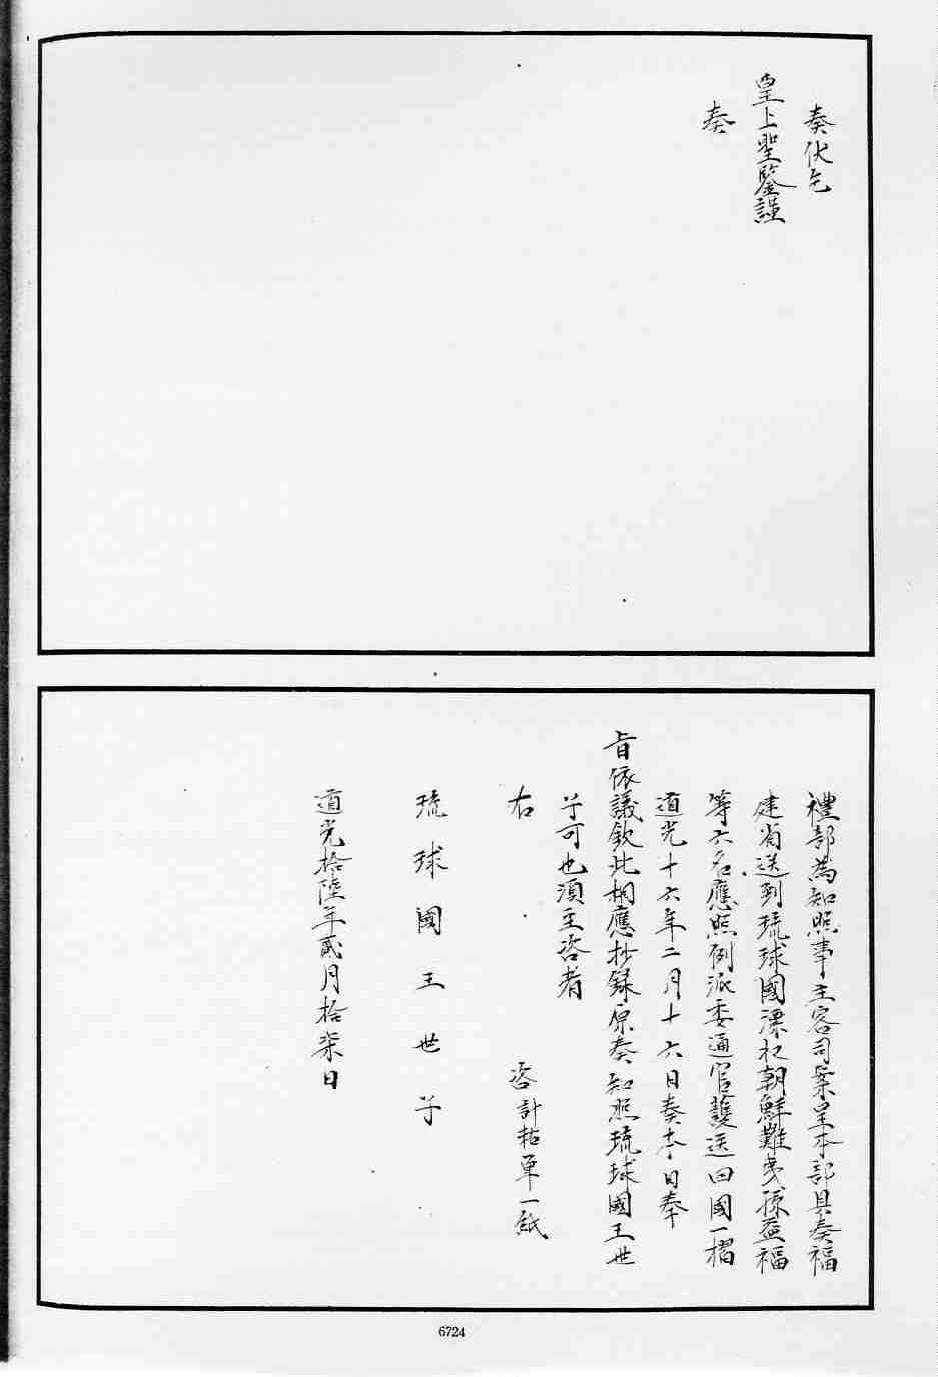 奏伏乞
皇上聖鑒謹
奏
禮部為知照事主客司案呈本部具奏福
建省送到琉球國漂收朝鮮難夷孫益福
等六名應照例派委通官護送回國一摺
道光十六年二月十六日奏本日奉
旨依議欽此相應抄録原奏知照琉球國王世
子可也須至咨者
右 咨計粘單一紙
琉球國王世子
道光拾陸年貳月拾柒日
6724